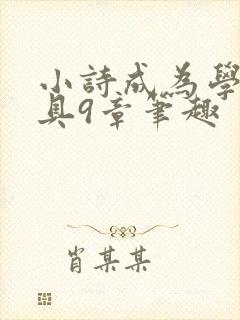 小詩成為學
具9章筆趣
肖某某